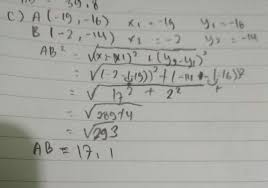 AB = 39,8
C) A(-19, -16) x₁ = -19 y₁ = -16
B(-2, -14) x₂ = -2 y₂ = -14
AB² = √(x₂-x₁)² + (y₂-y₁)²
= √(-2-(-19))² + (-14-(-16))²
= √17² + 2²
= √289+4
= √293
AB = 17,1